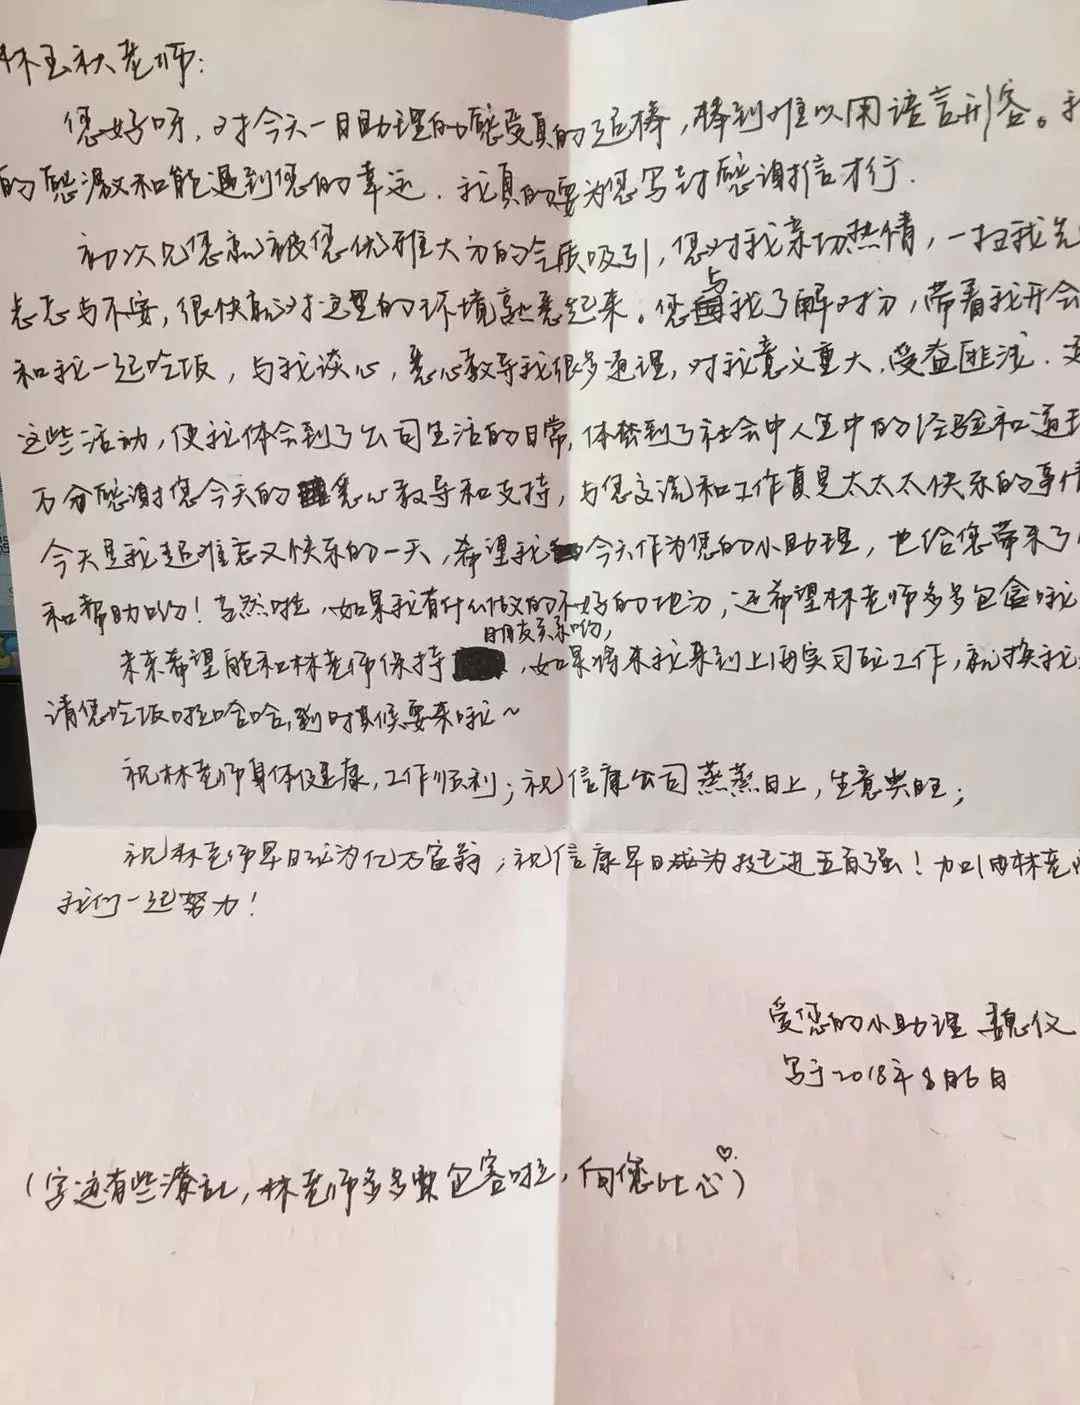 林玉秋老师：
您好呀，对今天一日助理的感受真的超棒，棒到难以用语言形容。
的感激和能遇到您的幸运，我真的要为您写封感谢信才行.
初次见您就被您优雅大方的气质吸引，您对我亲切热情，一扫我先
忐忑与不安，很快就对这里的环境熟悉起来。您与我了解对方，带着我开会
和我一起吃饭，与我谈心，悉心教导我很多道理，对我意义重大，受益匪浅.
这些活动，使我体会到了公司生活的日常，体察到了社会中人生中的经验和道理
万分感谢您今天的悉心教导和支持，与您交流和工作真是太太太快乐的事情
今天是我超难忘又快乐的一天，希望我今天作为您的小助理，也给您带来了
和帮助哟！当然啦，如果我有什么做的不好的地方，还希望林老师多多包含哦
未来希望能和林老师保持朋友关系哟，如果将来我来到上海实习或工作，就换我
请您吃饭啦哈哈，到时候要来哦～
祝林老师身体健康，工作顺利；祝信康公司蒸蒸日上，生意兴旺；
祝林老师早日成为亿万富翁；祝信康早日成为挺进五百强！加油林老师
我们一起努力！
爱您的小助理 魏仪
写于2018年8月6日
（字迹有些潦乱，林老师多多要包容啦，向您比心♡）